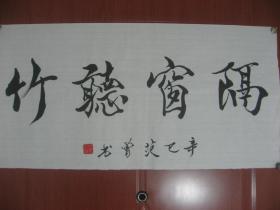 隔窗聽竹
辛巳 曾书